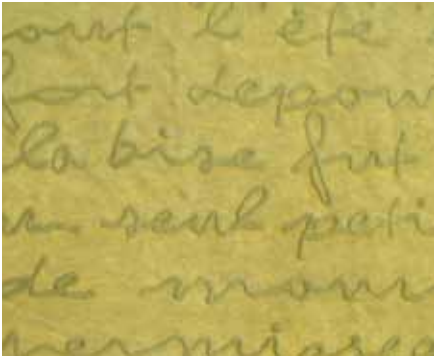 out l'été
fort depour
la bise fut
n seul peti
de mou
vermissea